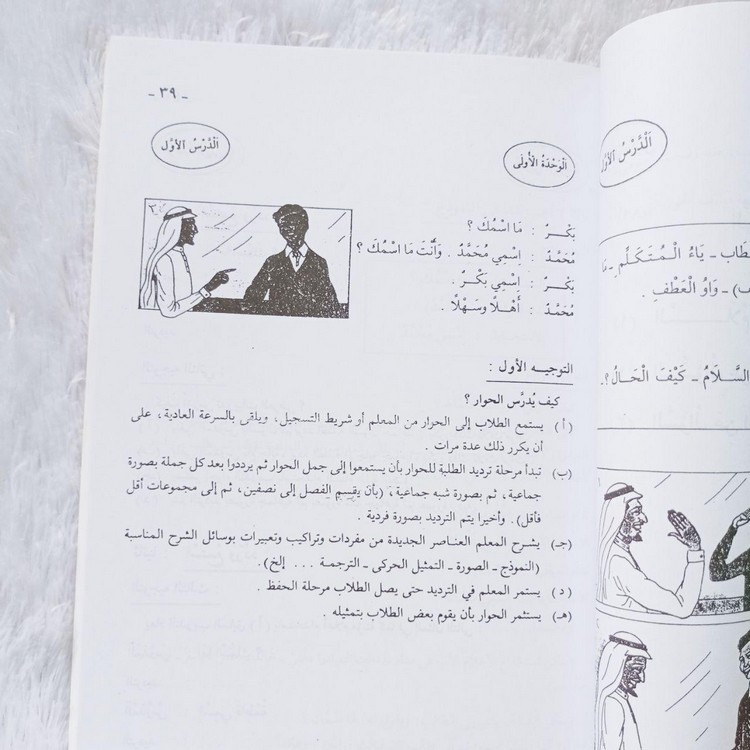 - ٣٩ -
اَلْوَحْدَةُ الْأُولَى
اَلدَّرْسُ الْأَوَّل
بَكْـرٌ : مَا اسْمُكَ ؟
مُحَمَّدٌ : اِسْمِي مُحَمَّدٌ . وَأَنْتَ مَا اسْمُكَ ؟
بَكْـرٌ : اِسْمِي بَكْـرٌ .
مُحَمَّدٌ : أَهْـلًا وَسَهْـلًا .
التوجيـه الأول :
كيف يُدرَّس الحوار ؟
(أ) يستمع الطلاب إلى الحوار من المعلم أو شريط التسجيل، ويلقى بالسرعة العادية، على
أن يكرر ذلك عدة مرات .
(ب) تبدأ مرحلة ترديد الطلبة للحوار بأن يستمعوا إلى جمل الحوار ثم يرددوا بعد كل جملة بصورة
جماعية، ثم بصورة شبه جماعية، (بأن يقسم الفصل إلى نصفين، ثم إلى مجموعات أقل
فأقل). وأخيرا يتم الترديد بصورة فردية .
(جـ) يشرح المعلم العناصر الجديدة من مفردات وتراكيب وتعبيرات بوسائل الشرح المناسبة
(النموذج ـ الصورة ـ التمثيل الحركى ـ الترجمة ... إلخ).
(د) يستمر المعلم في الترديد حتى يصل الطلاب مرحلة الحفظ .
(هـ) يستثمر الحوار بأن يقوم بعض الطلاب بتمثيله .
اَلدَّرْسُ
ـ يَاءُ الْمُتَكَلِّمِ ـ
ـ وَاوُ الْعَطْفِ .
السَّلَامُ ـ كَيْفَ الْحَالُ ؟.